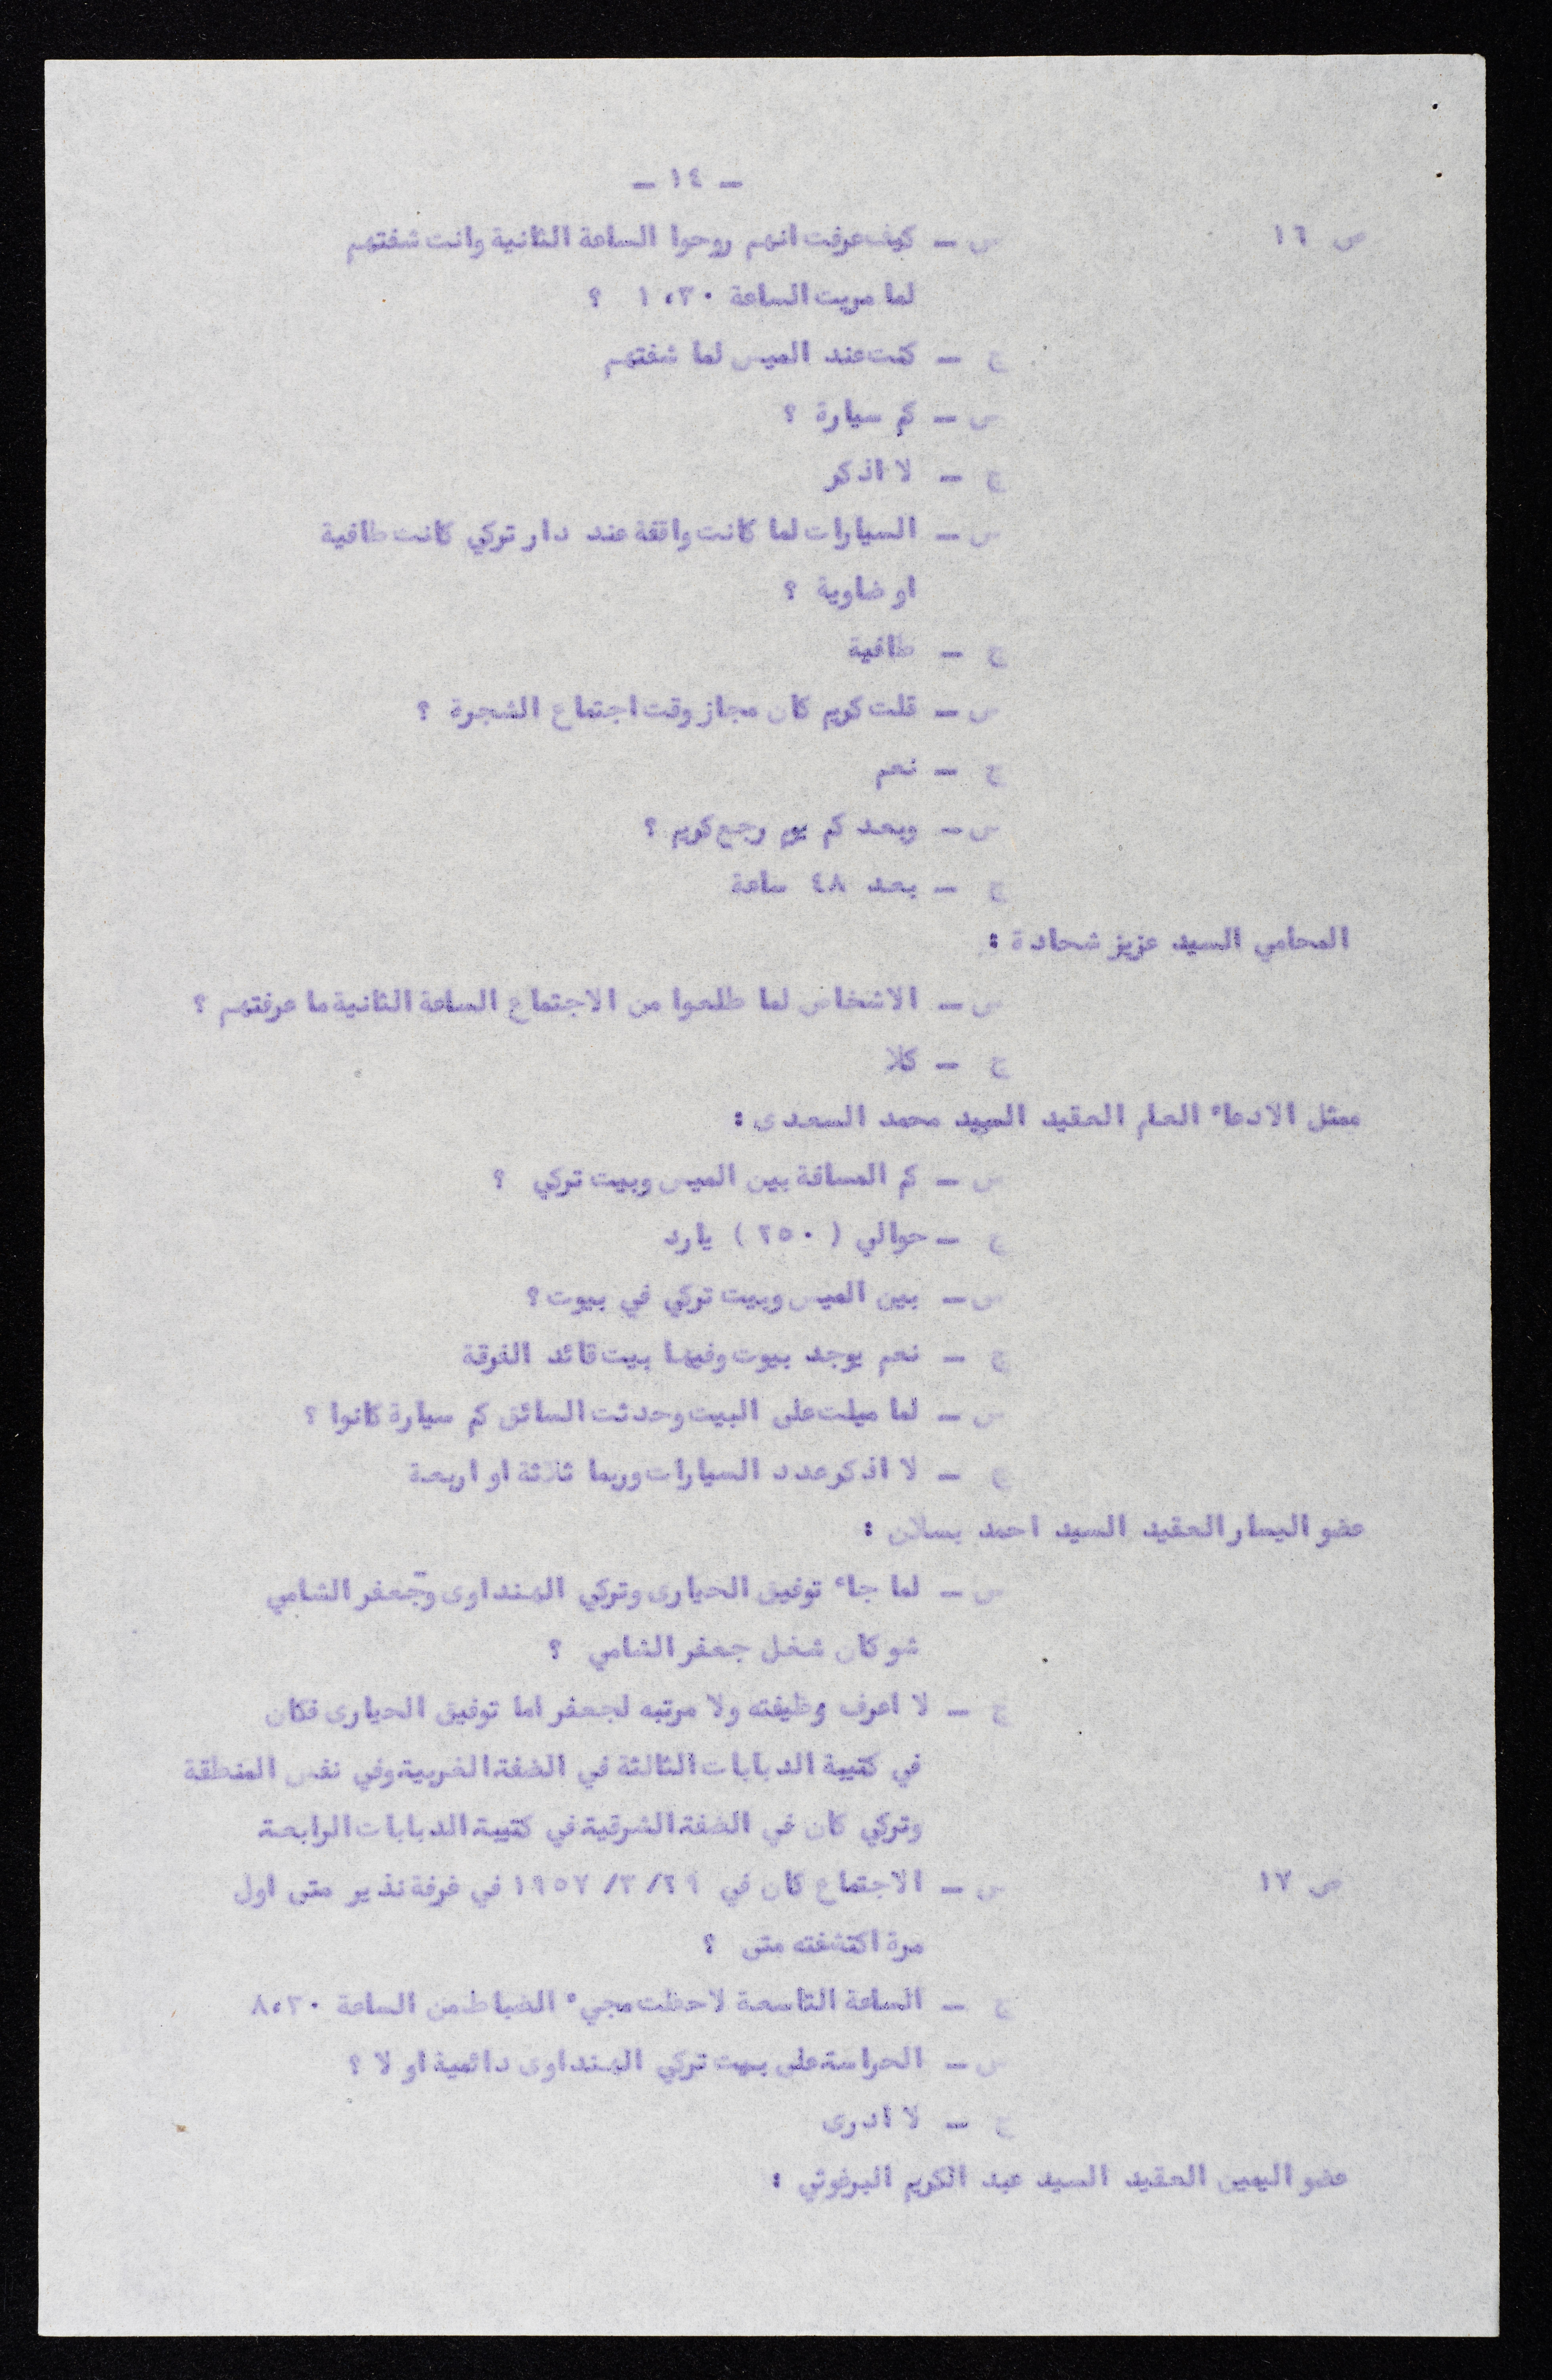 - ١٤ -
ص ١٦ س - كيف عرفت انهم روحوا الساعة الثانية وانت شفتهم
لما مريت الساعة ١،٣٠ ؟
ج - كنت عند الميس لما شفتهم
س - كم سيارة ؟
ج - لا اذكر
س - السيارات لما كانت واقفة عند دار تركي كانت طافية
او ضاوية ؟
ج - طافية
س - قلت كريم كان مجاز وقت اجتماع الشجرة ؟
ج - نعم
س - وبعد كم يوم رجع كريم ؟
ج - بعد ٤٨ ساعة
المحامي السيد عزيز شحادة :
س - الاشخاص لما طلعوا من الاجتماع الساعة الثانية ما عرفتهم ؟
ج - كلا
ممثل الادعاء العام العقيد السيد محمد السعدى :
س - كم المسافة بين الميس وبيت تركي ؟
ج - حوالي ( ٢٥٠ ) يارد
س - بين الميس وبيت تركي في بيوت ؟
ج - نعم يوجد بيوت وفيها بيت قائد الفرقة
س - لما ميلت على البيت وحدثت السائق كم سيارة كانوا ؟
ج - لا اذكر عدد السيارات وربما ثلاثة او اربعة
عضو اليسار العقيد السيد احمد بسلان :
س - لما جاء توفيق الحيارى وتركي الهنداوى وجعفر الشامي
شو كان شغل جعفر الشامي ؟
ج - لا اعرف وظيفته ولا مرتبه لجعفر اما توفيق الحيارى فكان
في كتيبة الدبابات الثالثة في الضفة الغربية وفي نفس المنطقة
وتركي كان في الضفة الشرقية في كتيبة الدبابات الرابعة
ص ١٧ س - الاجتماع كان في ٢٩/٣/١٩٥٧ في غرفة نذير متى اول
مرة اكتشفته متى ؟
ج - الساعة التاسعة لاحظت مجيء الضباط من الساعة ٨،٣٠
س - الحراسة على بيت تركي الهنداوى دائمية او لا ؟
ج - لا ادرى
عضو اليمين العقيد السيد عبد الكريم البرغوثي :